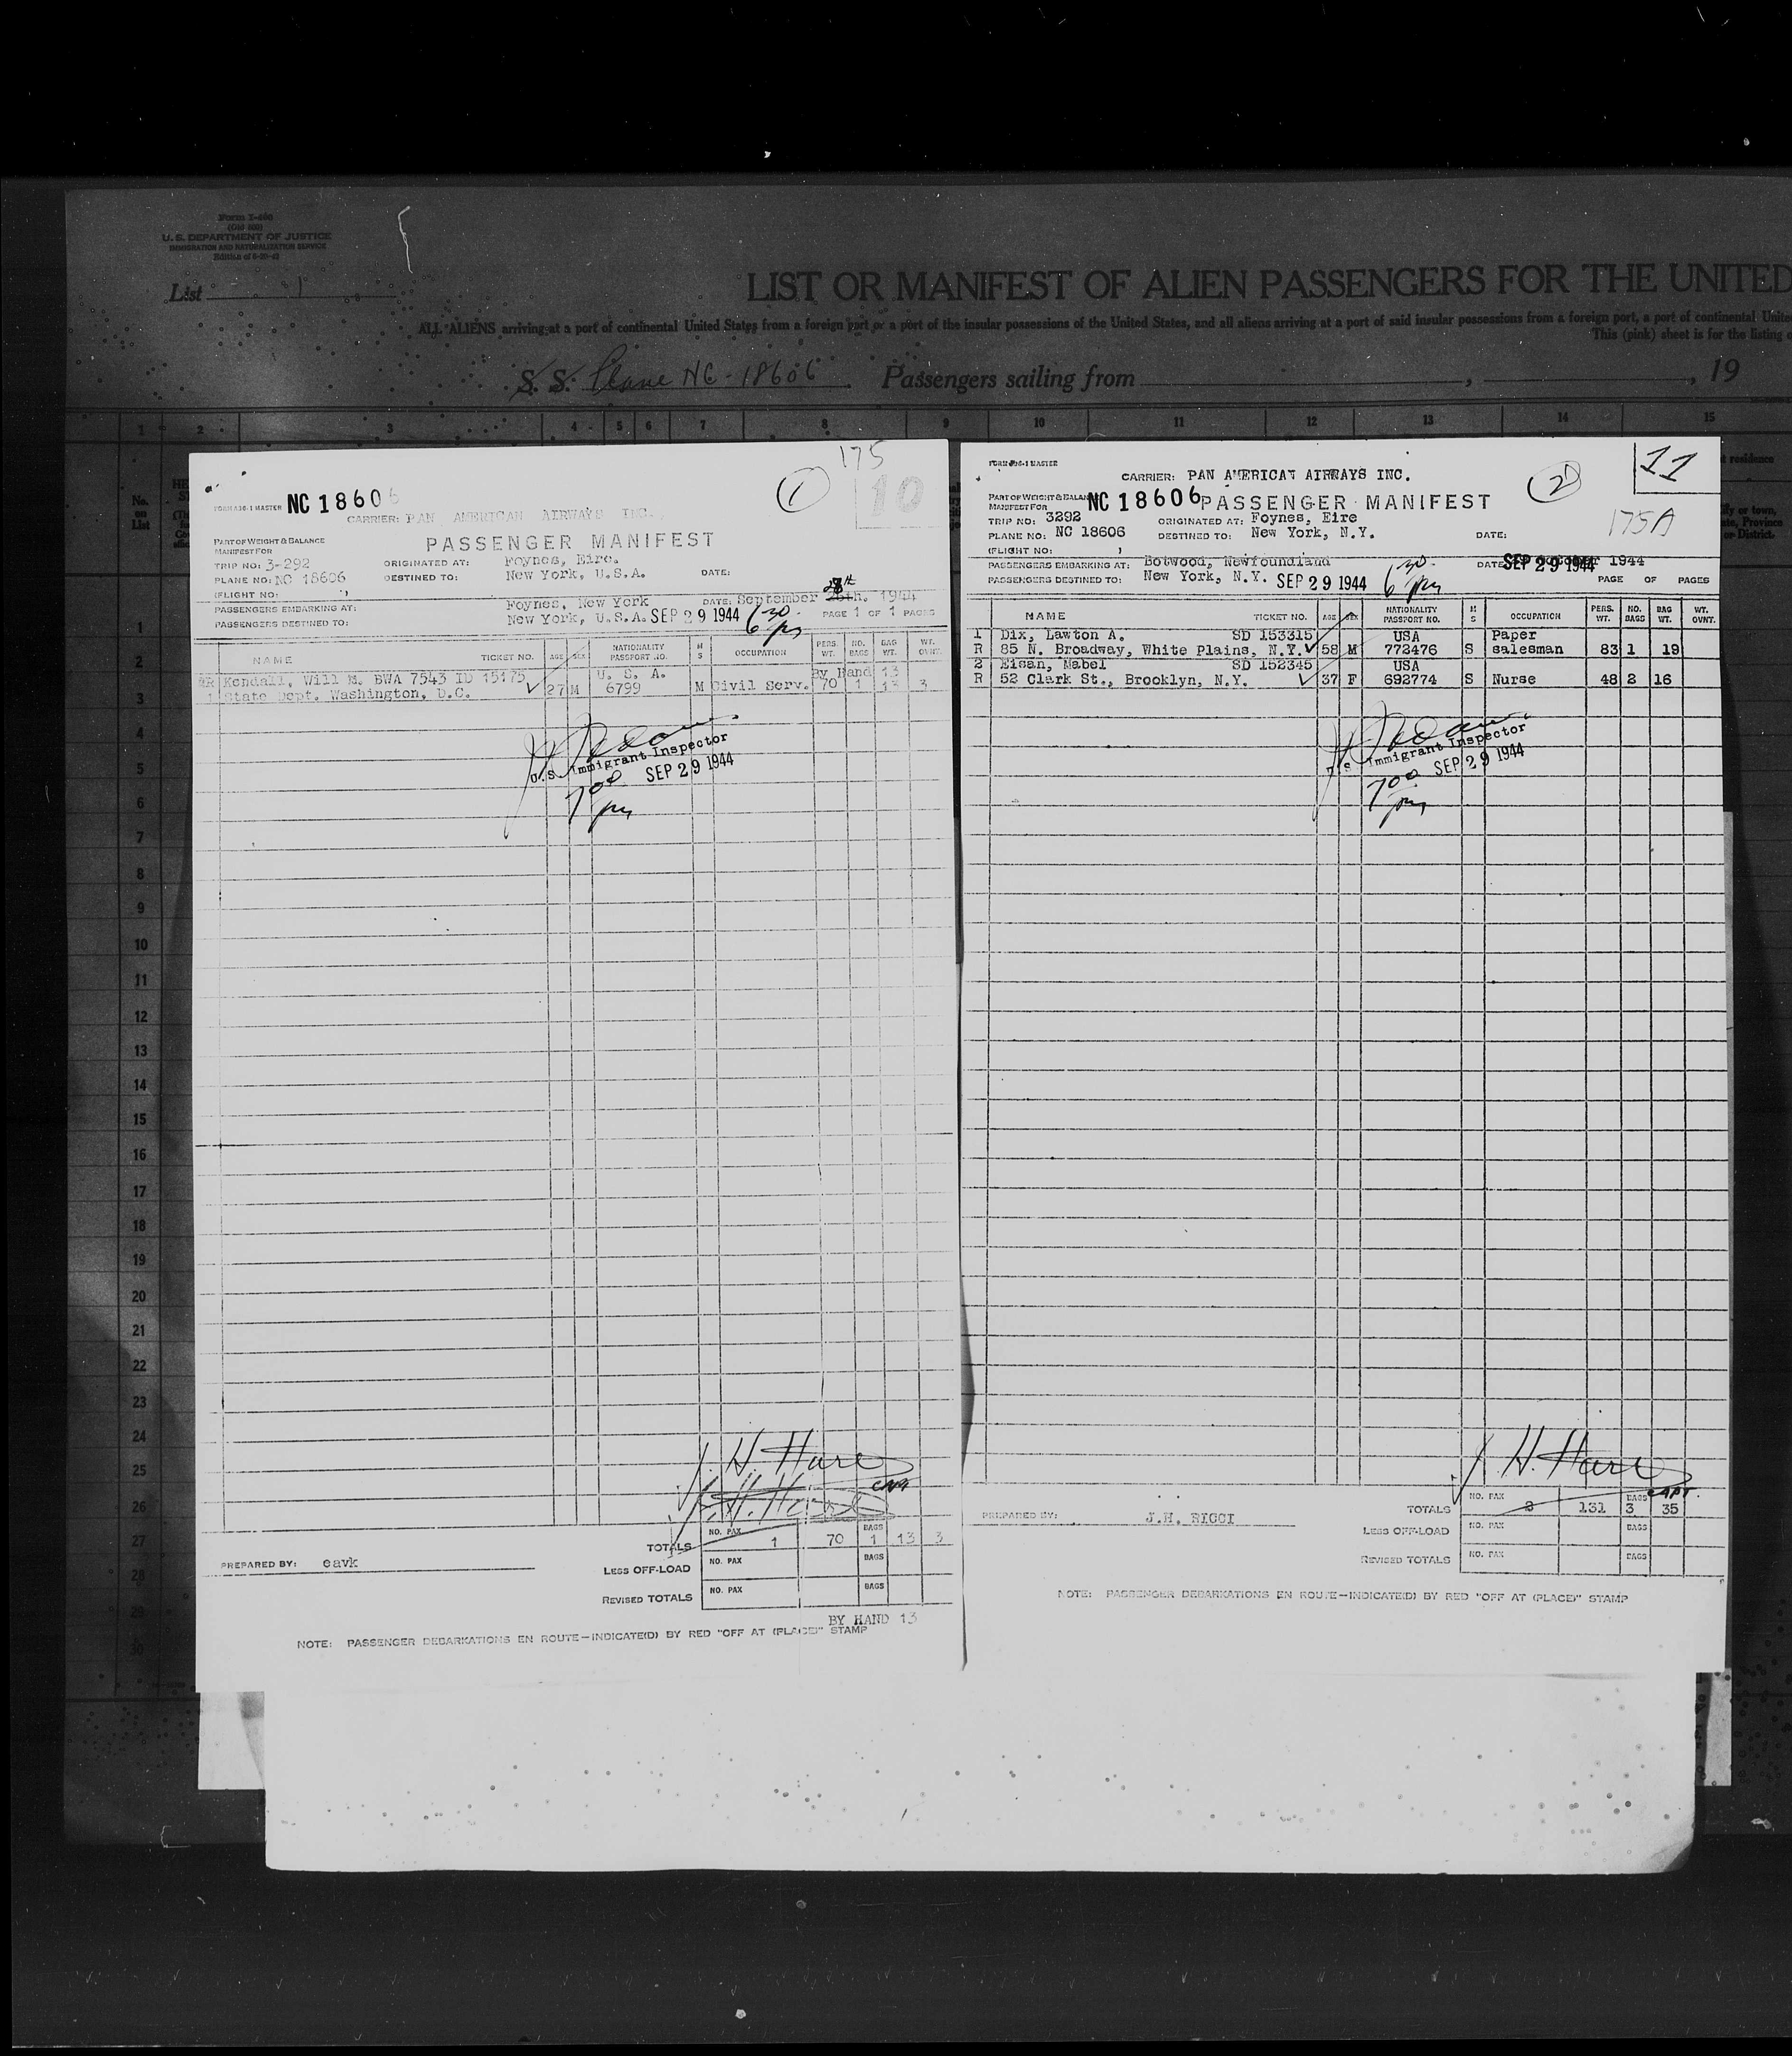 Form I-466
(Old 500)
U. S. DEPARTMENT OF JUSTICE
IMMIGRATION AND NATURALIZATION SERVICE
List 1
LIST OR MANIFEST OF ALIEN PASSENGERS FOR THE UNITED
ALL ALIENS arriving at a port of continental United States from a foreign port or a port of the insular possessions of the United States, and all aliens arriving at a port of said insular possessions from a foreign port, a port of continental Unite
This (pink) sheet is for the listing o
S. S. Plane NC-18606 Passengers sailing from , , 19
1 2 3 4 5 6 7 8 9 10 11 12 13 14 15
No. on List
175
1
10
FORM 836-1 MASTER NC 18606
CARRIER: PAN AMERICAN AIRWAYS INC.
PART OF WEIGHT & BALANCE
MANIFEST FOR
PASSENGER MANIFEST
TRIP NO: 3-292 ORIGINATED AT: Foynes, Eire.
PLANE NO: NC 18606 DESTINED TO: New York, U.S.A. DATE:
(FLIGHT NO: )
28th
PASSENGERS EMBARKING AT: Foynes, New York DATE: September 1944
PASSENGERS DESTINED TO: New York, U.S.A. SEP 29 1944 6 30 pm PAGE 1 OF 1 PAGES
NAME TICKET NO. AGE SEX NATIONALITY PASSPORT NO. M S OCCUPATION PERS. WT. NO. BAGS BAG WT. WT. OVNT.
Kendall, Will M. BWA 7543 ID 15175 U. S. A. By Hand 13
1 State Dept. Washington, D.C. 27 M 6799 M Civil Serv. 70 1 13 3
U.S. Immigrant Inspector
SEP 29 1944
7 00 pm
J. H. Hare
CAPT
TOTALS NO. PAX 1 70 BAGS 1 13 3
PREPARED BY: eavk
LESS OFF-LOAD NO. PAX BAGS
REVISED TOTALS NO. PAX BAGS
BY HAND 13
NOTE: PASSENGER DEBARKATIONS EN ROUTE—INDICATE(D) BY RED "OFF AT (PLACE)" STAMP
FORM 836-1 MASTER
2
11
175A
CARRIER: PAN AMERICAN AIRWAYS INC.
PART OF WEIGHT & BALANCE
MANIFEST FOR
NC 18606 PASSENGER MANIFEST
TRIP NO: 3292 ORIGINATED AT: Foynes, Eire
PLANE NO: NC 18606 DESTINED TO: New York, N.Y. DATE:
(FLIGHT NO: )
PASSENGERS EMBARKING AT: Botwood, Newfoundland DATE: SEP 29 1944 October 1944
PASSENGERS DESTINED TO: New York, N.Y. SEP 29 1944 6 30 pm PAGE OF PAGES
NAME TICKET NO. AGE SEX NATIONALITY PASSPORT NO. M S OCCUPATION PERS. WT. NO. BAGS BAG WT. WT. OVNT.
1 Dix, Lawton A. SD 153315 USA Paper
R 85 N. Broadway, White Plains, N.Y. 58 M 772476 S salesman 83 1 19
2 Eisan, Mabel SD 152345 USA
R 52 Clark St., Brooklyn, N.Y. 37 F 692774 S Nurse 48 2 16
U.S. Immigrant Inspector
SEP 29 1944
7 00 pm
J. H. Hare
CAPT.
TOTALS NO. PAX 2 131 BAGS 3 35
PREPARED BY: J.H. RICCI
LESS OFF-LOAD NO. PAX BAGS
REVISED TOTALS NO. PAX BAGS
NOTE: PASSENGER DEBARKATIONS EN ROUTE—INDICATE(D) BY RED "OFF AT (PLACE)" STAMP
1
2
3
4
5
6
7
8
9
10
11
12
13
14
15
16
17
18
19
20
21
22
23
24
25
26
27
28
29
30